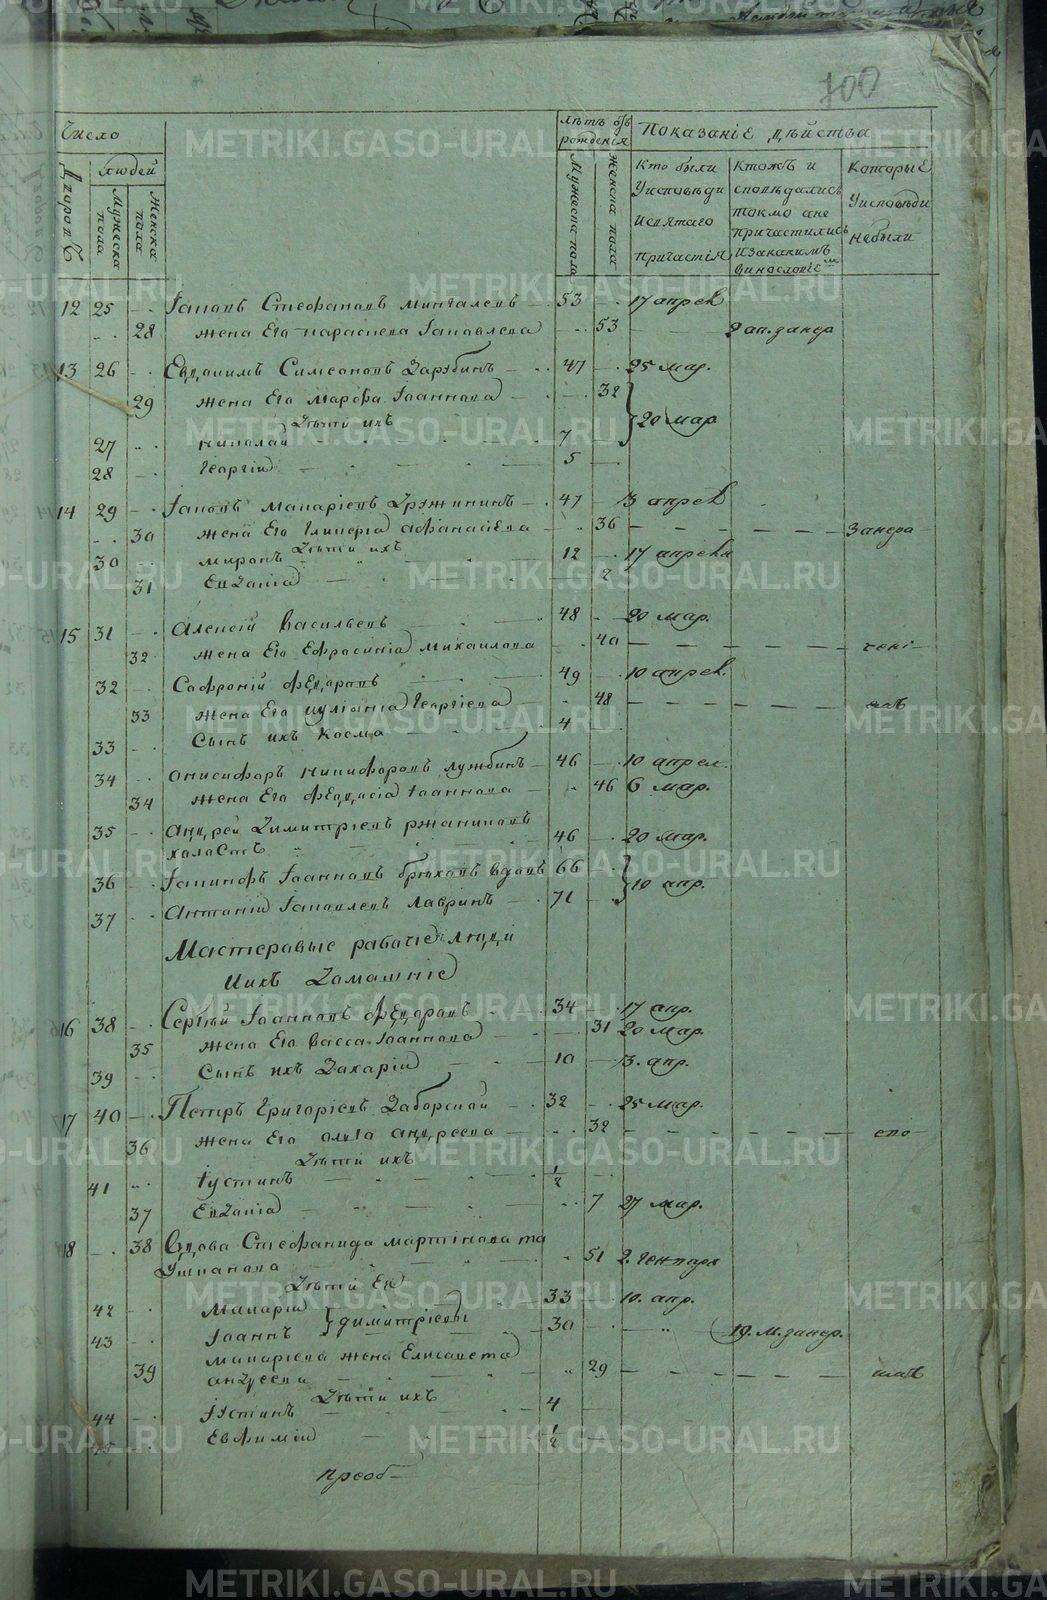 700
Число
лѣтъ отъ рожденія
Показаніе дѣйства
людей
Дворовъ
Мужеска пола
Женска пола
Мужеска пола
Женска пола
Кто были
Уисповѣди
Исвятаго
Причастія
Ктожъ и
сповѣдались
токмо ане
причастились
изакакимъ
винословіемъ
Которые
Уисповѣди
Небыли
12 25 Іаковъ Стефановъ Мингалевъ 53 17 апрел
28 жена Его параскева Іаковлева 53
13 26 Евдокимъ Симеоновъ Зарубинъ 47 25 мар.
29 жена Его Марфа Іоаннова 32
Дѣти ихъ
20 мар
27 николай 7
28 Георгій 5
14 29 Іаковъ Макаріевъ Дружининъ 47 3 апрел
30 жена Его Гликерія Афанасіева 36
Дѣти ихъ
30 миронъ 12 17 апрел
31 Евдокія 2
15 31 Алексій Васильевъ 48 20 мар.
32 жена Его Ефросинія Михаилова 40
32 Сафроній Феодоровъ 49 10 апрел.
33 жена Его Іуліанія Георгіева 48
33 Сынъ ихъ Косма 4
34 Онисифоръ Никифоровъ Лужбинъ 46 10 апрел.
34 жена Его Феодосія Іоаннова 46 6 мар.
35 Андрей Димитріевъ ржаниковъ
холостъ 46 20 мар.
36 Іакинфъ Іоанновъ брюховъ вдовъ 66
10 апр.
37 Антоній Іаковлевъ Лавринъ 71
Мастеровые рабочіе люди
Иихъ Домашніе
16 38 Сергій Іоанновъ Феодоровъ 34 17 апр.
35 жена Его Васса Іоаннова 31 20 мар.
39 Сынъ ихъ Захарій 10 3. апр.
17 40 Петръ Григоріевъ Заборской 32 25 мар.
36 жена Его Олга Андреева 32
Дѣти ихъ
41 Іустинъ 1/2
37 Евдокія 7 27 мар.
18 38 Вдова Стефанида мартинова та
Ушакова 51 2. Генваря
Дѣти Ея
42 Макарій 33 10. апр.
Димитріевы
43 Іоаннъ 30
39 Макаріева жена Елисавета
Андреева 29
Дѣти ихъ
44 Іустинъ 4
45 Евфимій 1/2
преоб-
METRIKI.GASO-URAL.RU